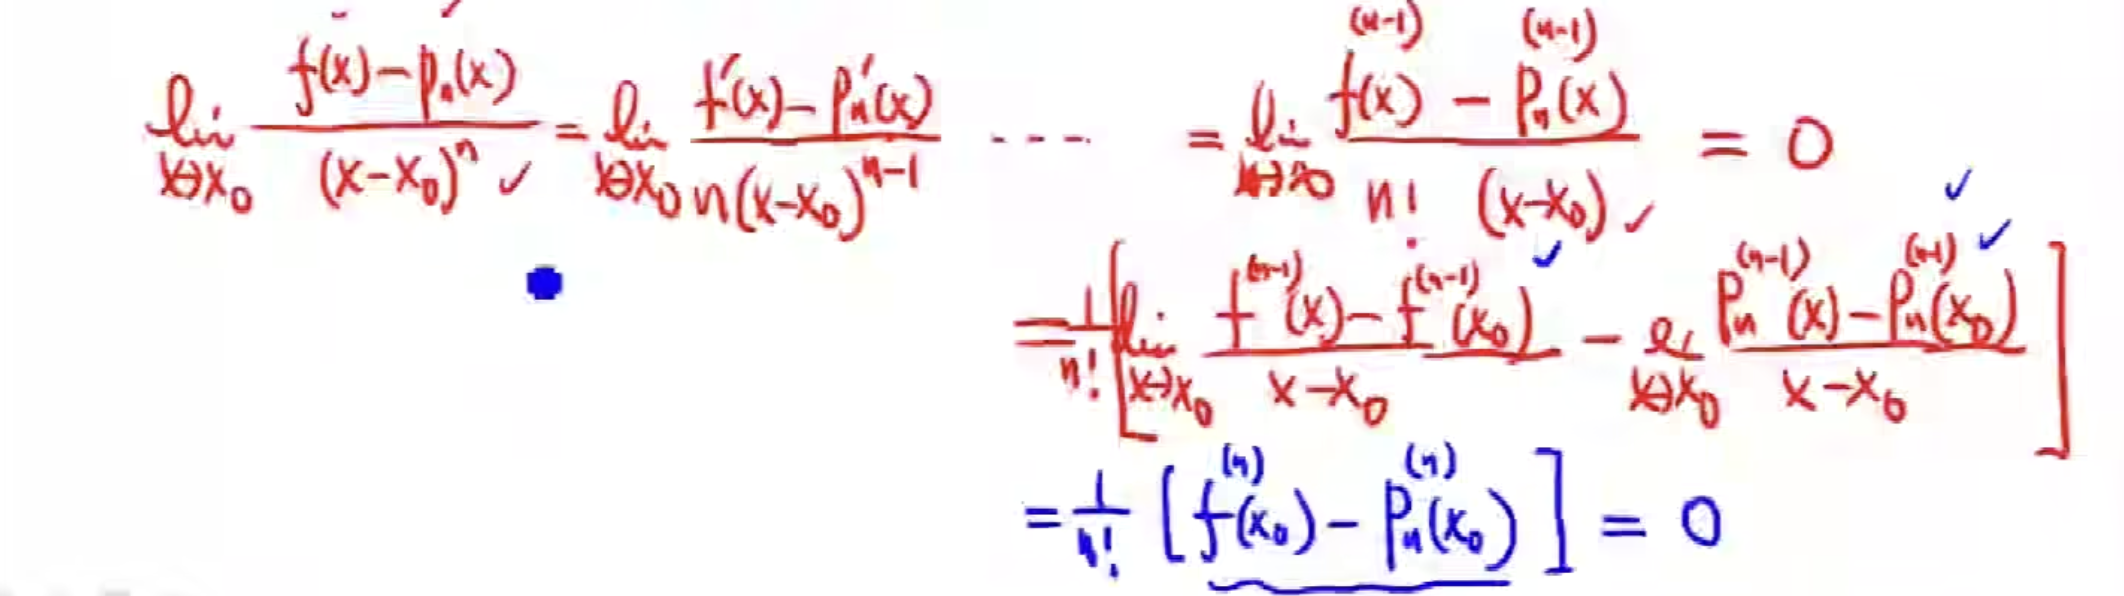 lim x→x₀ (f(x)-Pₙ(x))/(x-x₀)ⁿ ✓ = lim x→x₀ (f'(x)-Pₙ'(x))/(n(x-x₀)ⁿ⁻¹) ---- = lim x→x₀ (f⁽ⁿ⁻¹⁾(x) - Pₙ⁽ⁿ⁻¹⁾(x))/(n! (x-x₀)) ✓ = 0
= 1/n! [lim x→x₀ (f⁽ⁿ⁻¹⁾(x)-f⁽ⁿ⁻¹⁾(x₀))/(x-x₀) - lim x→x₀ (Pₙ⁽ⁿ⁻¹⁾(x)-Pₙ⁽ⁿ⁻¹⁾(x₀))/(x-x₀)]
= 1/n! [f⁽ⁿ⁾(x₀)-Pₙ⁽ⁿ⁾(x₀)] = 0